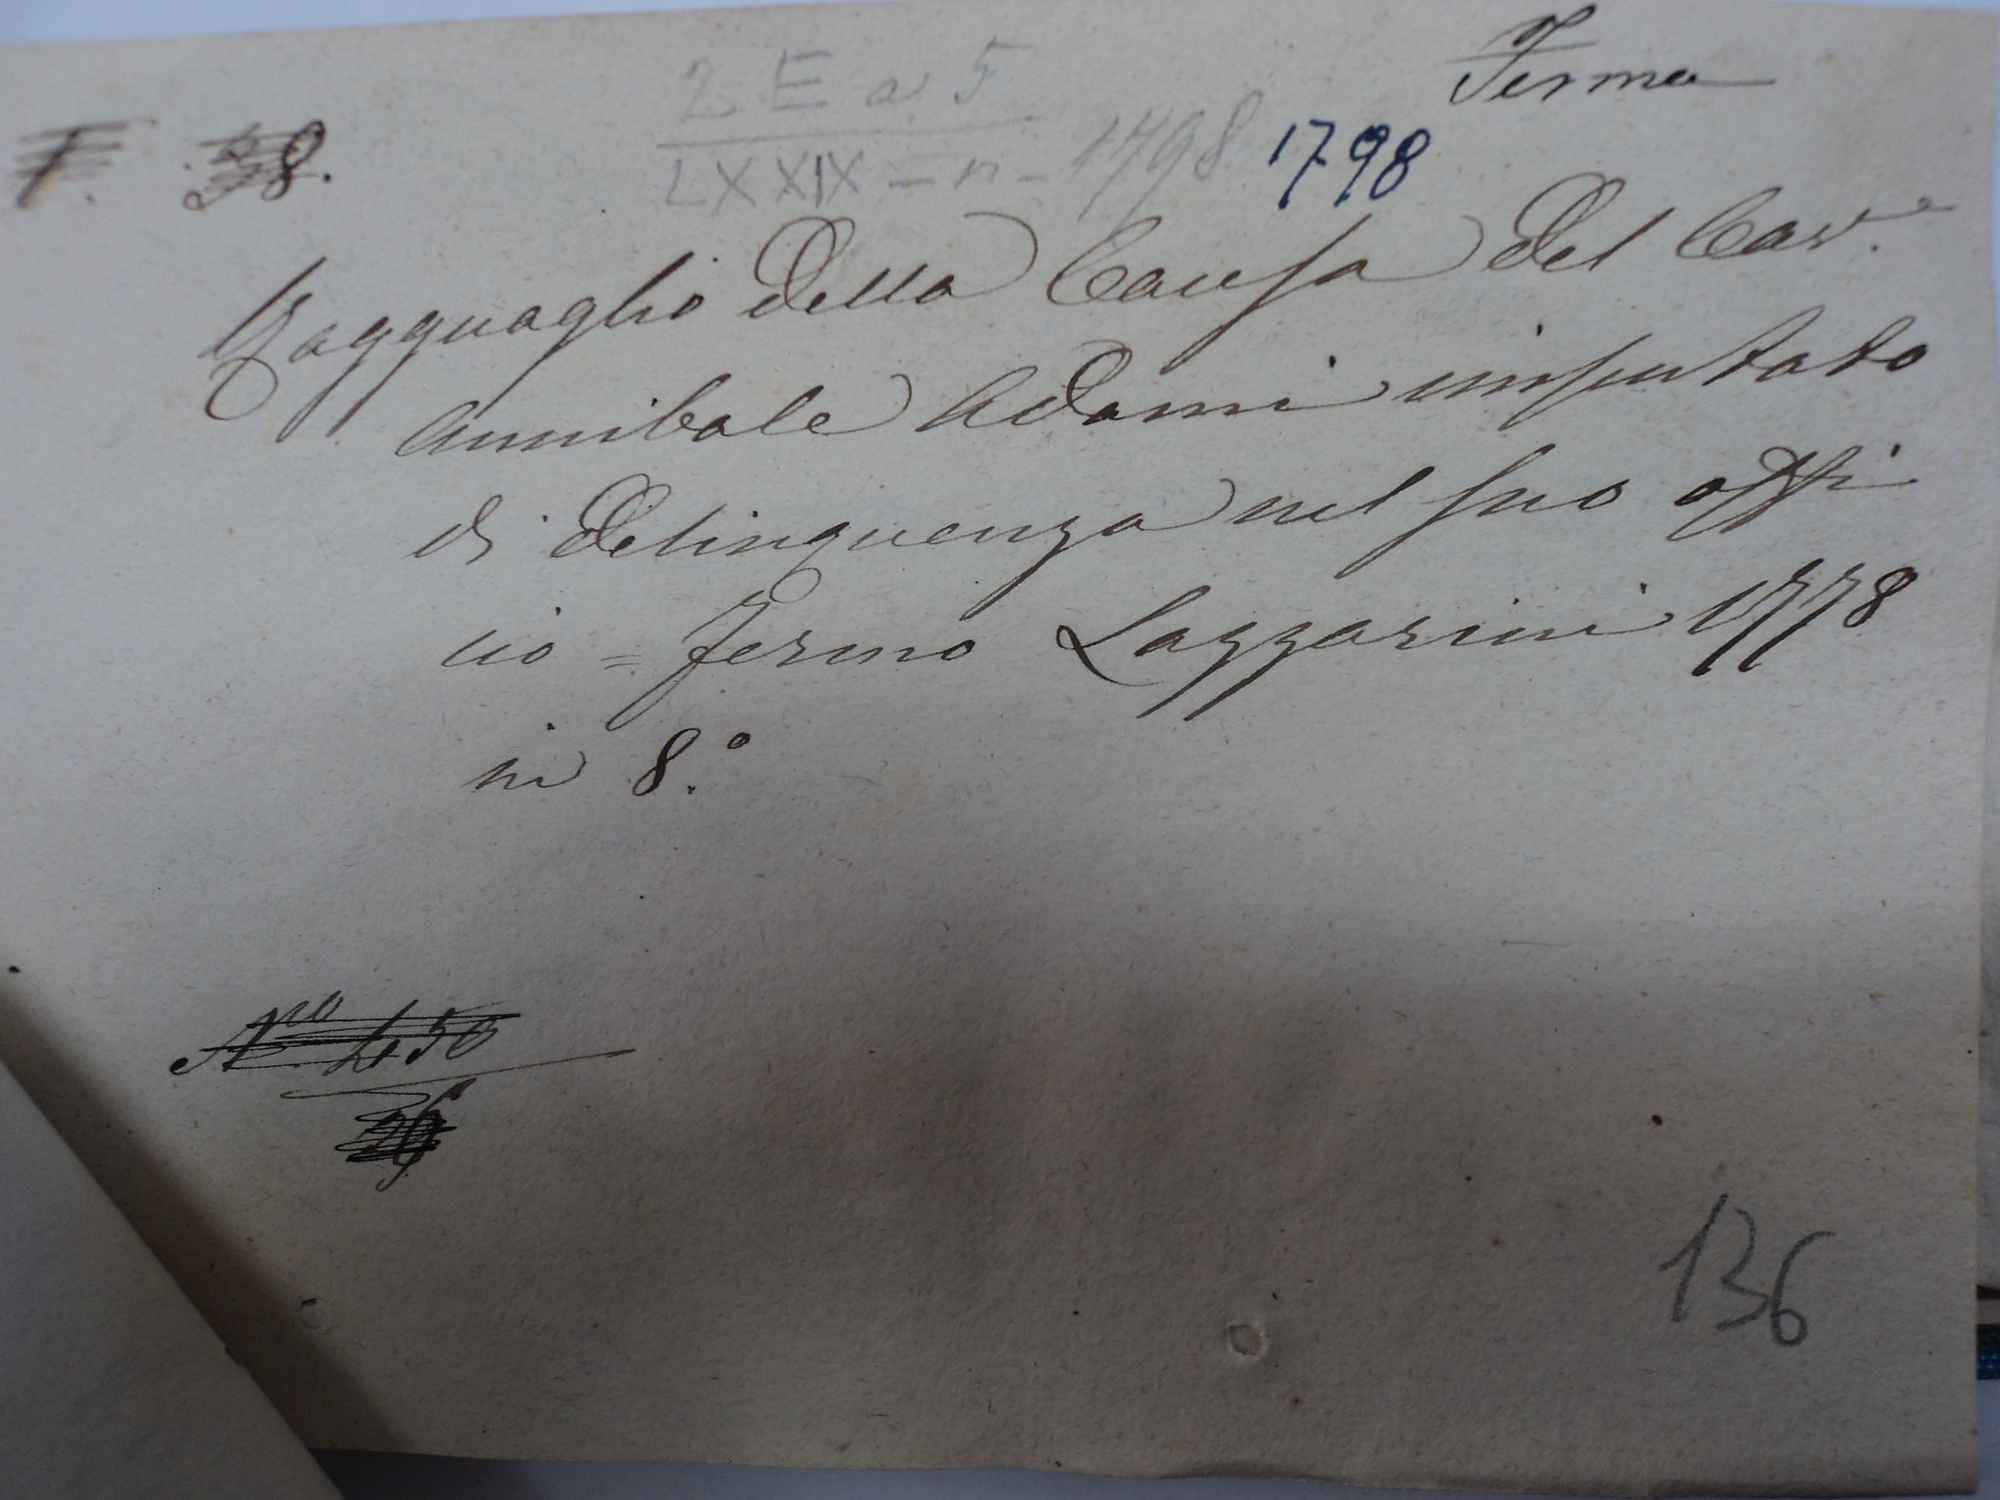 Fermo
2 E a 5
LXXIX - n - 1798 1798
F. 38.
Ragguaglio della Causa del Cav.e
Annibale Adami imputato
di delinquenza nel suo offi
cio = Fermo Lazzarini 1778
in 8.°
N.ro 450
136